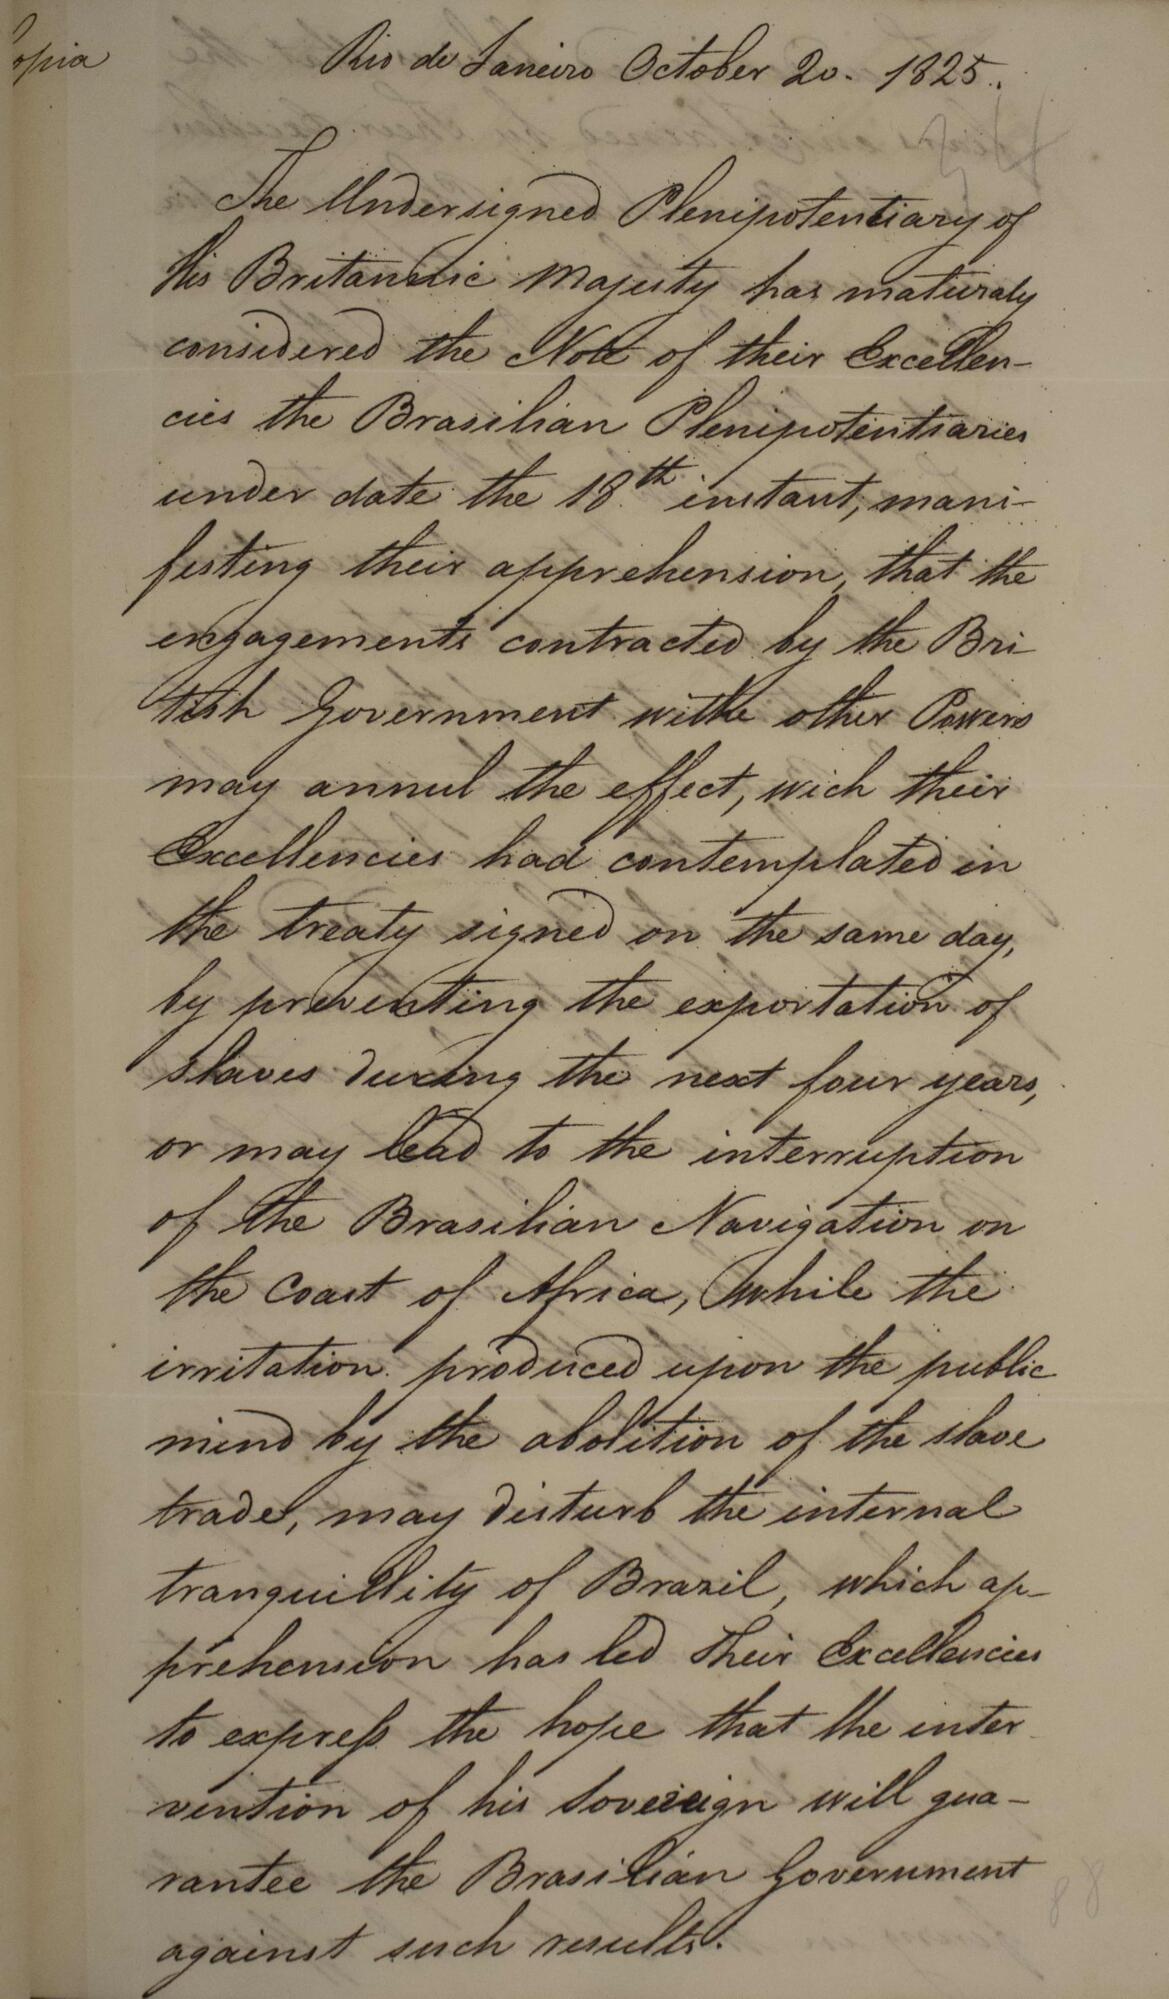 Copia
Rio de Janeiro October 20. 1825.
The Undersigned Plenipotentiary of
his Britannic Majesty has maturaly
considered the Note of their Excellen-
cies the Brasilian Plenipotentiaries
under date the 18th instant, mani-
festing their apprehension, that the
engagements contracted by the Bri-
tish Government withe other Powers
may annul the effect, wich their
Excellencies had contemplated in
the treaty signed on the same day,
by preventing the exportation of
slaves during the next four years,
or may lead to the interruption
of the Brasilian Navigation on
the Coast of Africa, while the
irritation produced upon the public
mind by the abolition of the slave
trade, may disturb the internal
tranquillity of Brazil, which ap-
prehension has led their Excellencies
to express the hope that the inter
vention of his Sovereign will gua-
rantee the Brasilian Government
against such results.
88